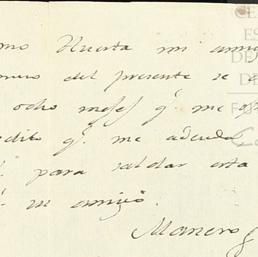 mo Huerta mi amig
mero del presente se
ocho messes q.e me
edito q.e me adeuda
para saldar esta
su amigo
Manero